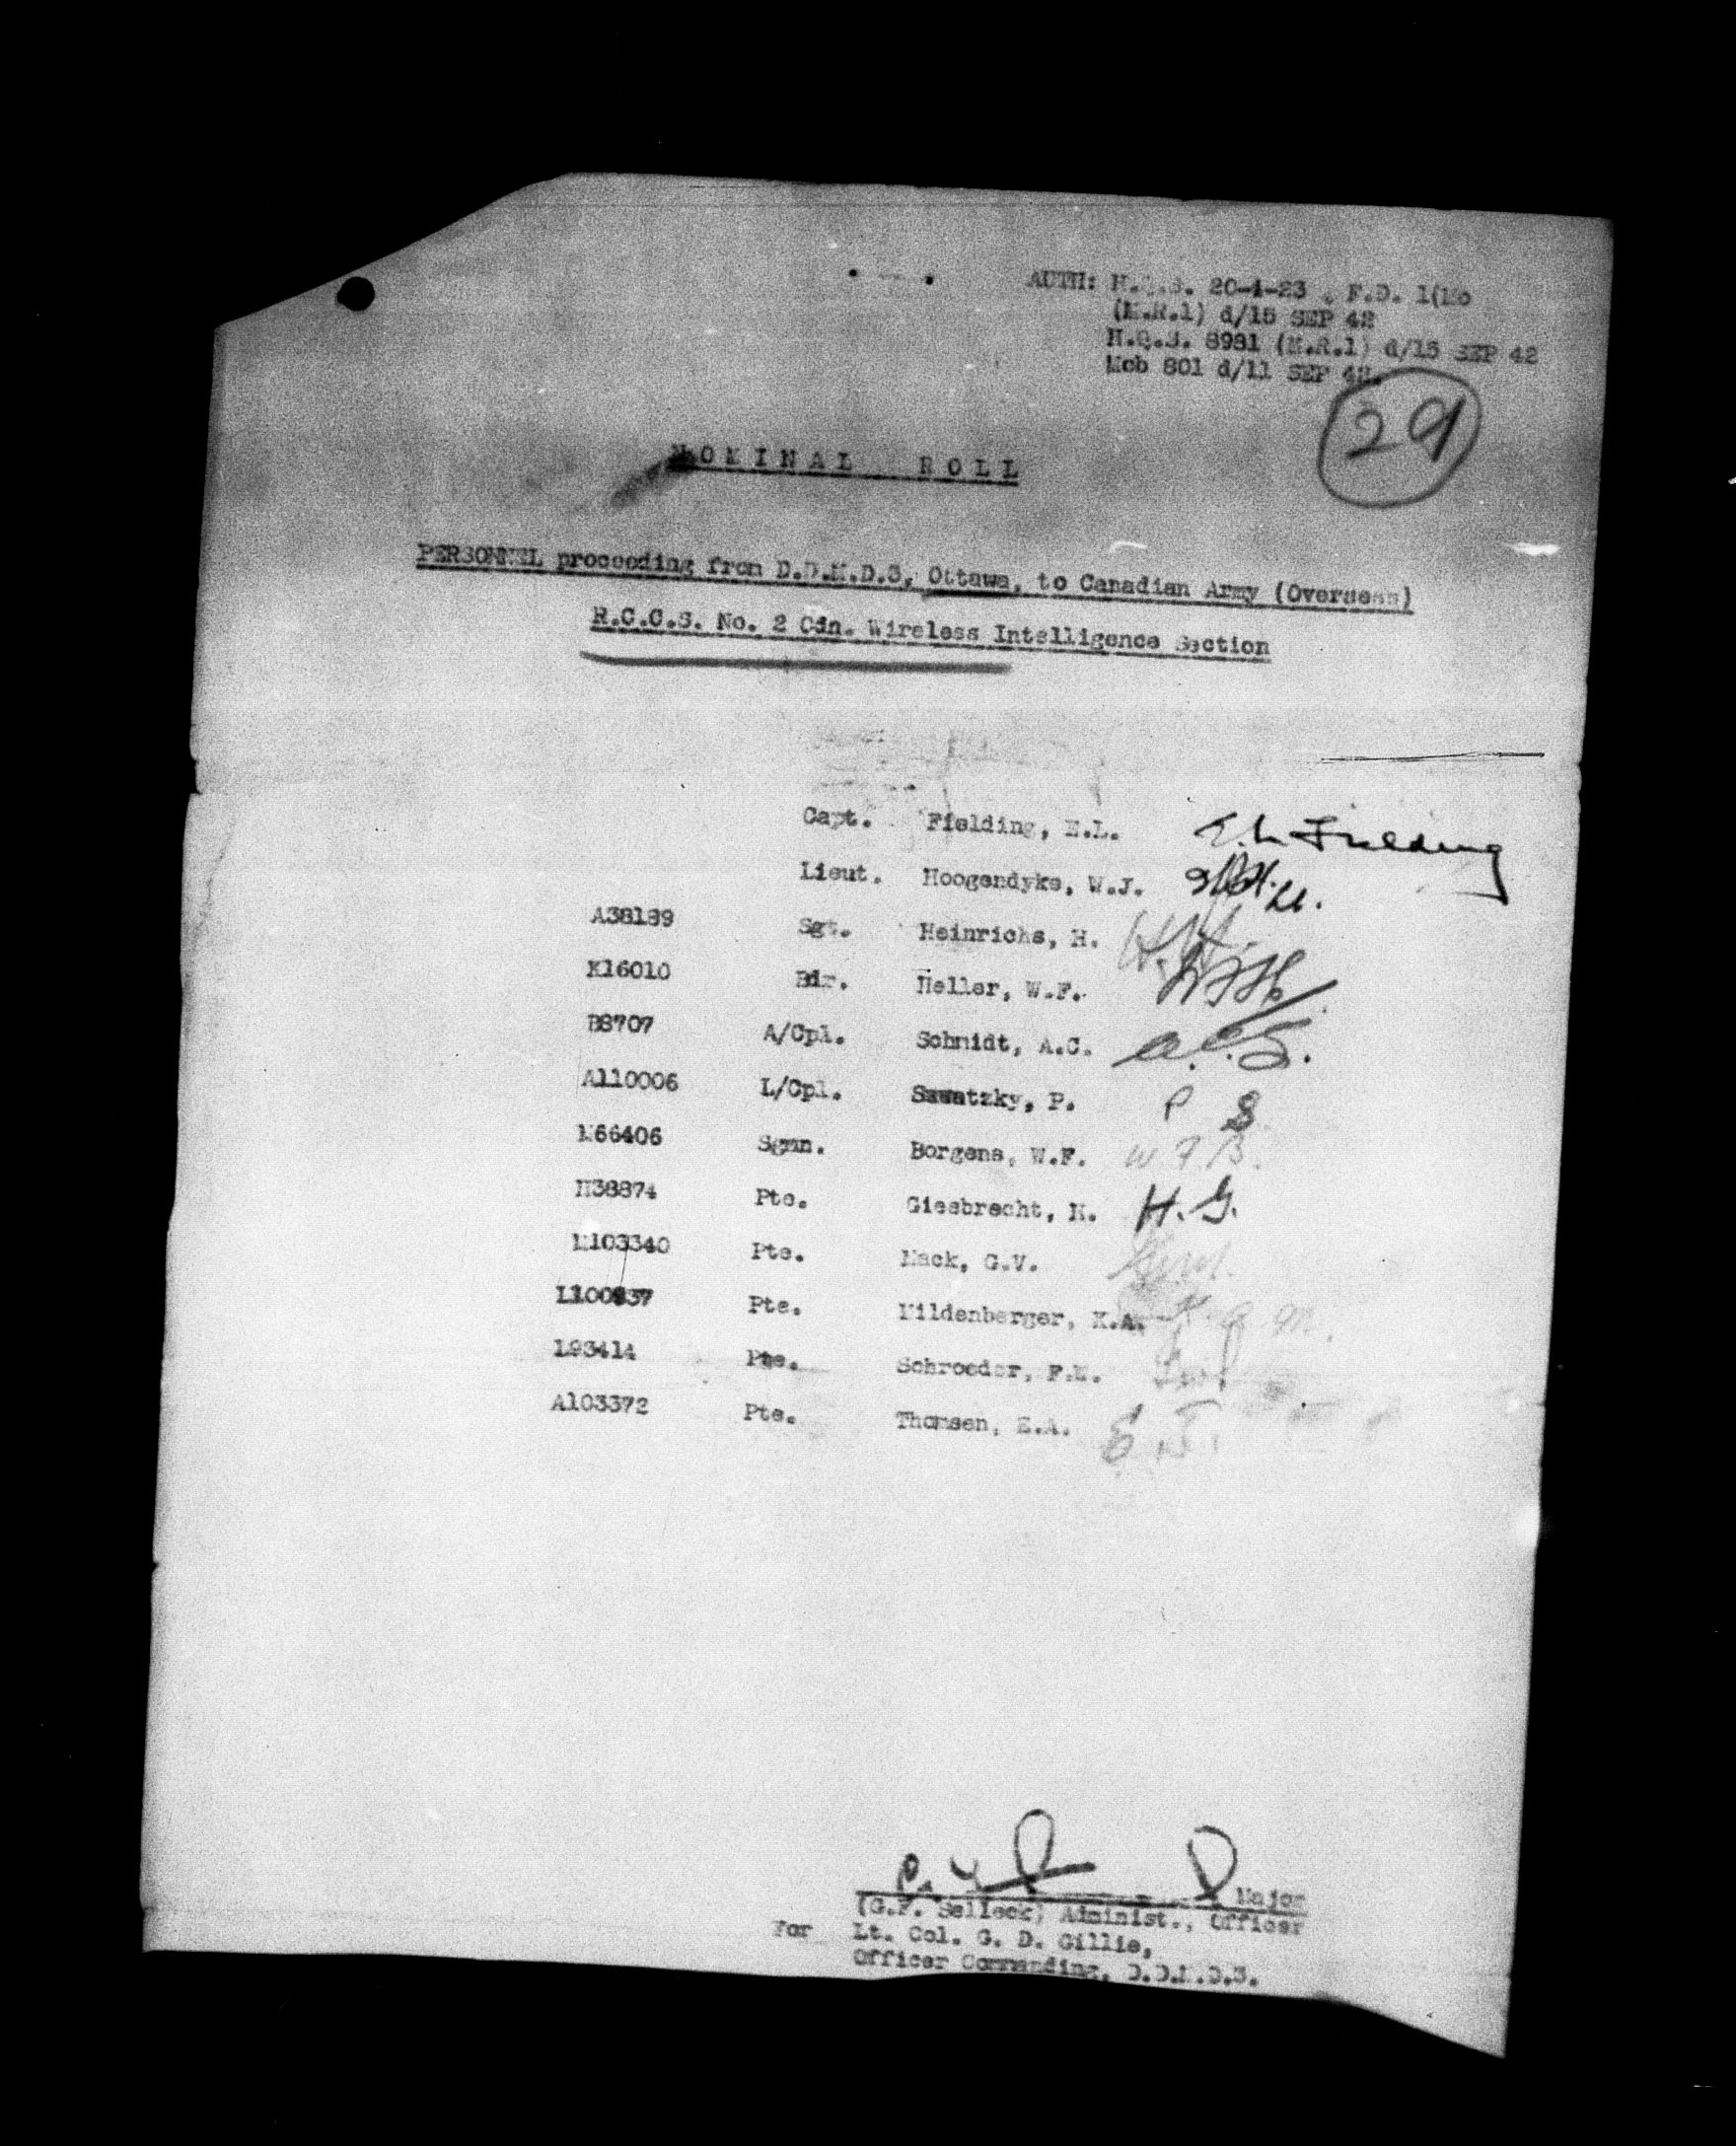 AUTH: H.Q.S. 20-4-23 F.D. 1(Mo
(M.R.1) d/15 SEP 42
H.Q.S. 8981 (M.R.1) d/15 SEP 42
Mob 801 d/11 SEP 42.
29
NOMINAL ROLL
PERSONNEL proceeding from D.D.M.D.3, Ottawa, to Canadian Army (Overseas)
R.C.C.S. No. 2 Cdn. Wireless Intelligence Section
Capt. Fielding, E.L. E.L. Fielding
Lieut. Hoogendyke, W.J.
A38189 Sgt. Heinrichs, H. H.H.
K16010 Bdr. Heller, W.F. WFH
B8707 A/Cpl. Schmidt, A.C. A.C.S.
A110006 L/Cpl. Sawatzky, P. P S
M66406 Sgmn. Borgens, W.F. W F B.
H38874 Pte. Giesbrecht, H. H. G.
M103340 Pte. Mack, G.V.
Pte. Mildenberger, K.A. K a m.
L93414 Pte. Schroeder, F.E.
A103372 Pte. Thomsen, E.A. E. T.
Major
(G.F. Selleck) Administ., Officer
For Lt. Col. G. D. Gillie,
Officer Commanding, D.D.M.D.3.